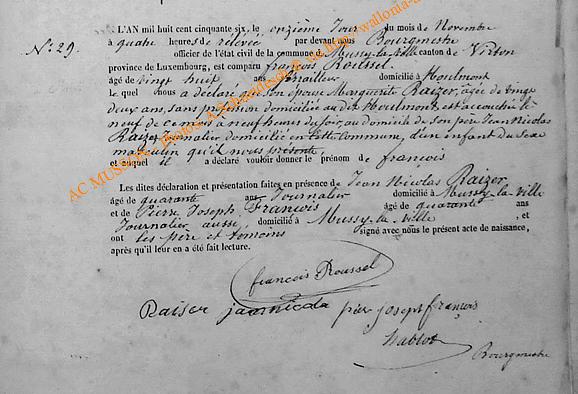 N.° 29.
L'AN mil huit cent cinquante six, le onzième Jour du mois de Novembre
à quatre heures de relevée par devant nous Bourgmestre
officier de l'état civil de la commune de Mussy-la-Ville canton de Virton
province de Luxembourg, est comparu françois Roussel
âgé de vingt huit ans domicilié à
le quel nous a déclaré que son épouse Marguerite Raizer, agée de
deux ans, sans profession domiciliée au dit est accouchée le
neuf de ce mois à neuf heures du soir au domicile de son père Jean Nicolas
Raizer journalier domicilié en cette Commune, d'un enfant du sexe
masculin qu'il nous présente,
et auquel il a déclaré vouloir donner le prénom de francois
Les dites déclaration et présentation faites en présence de Jean Nicolas Raizer
âgé de quarante ans Journalier domicilié à Mussy-la-ville
et de Pierre Joseph François âgé de quarante ans
Journalier aussi domicilié à Mussy-la-ville, et
ont les père et témoins signé avec nous le présent acte de naissance,
après qu'il leur en a été fait lecture.
françois Roussel
Raiser pier joseph françois
Bourgmestre
AC MUSSON